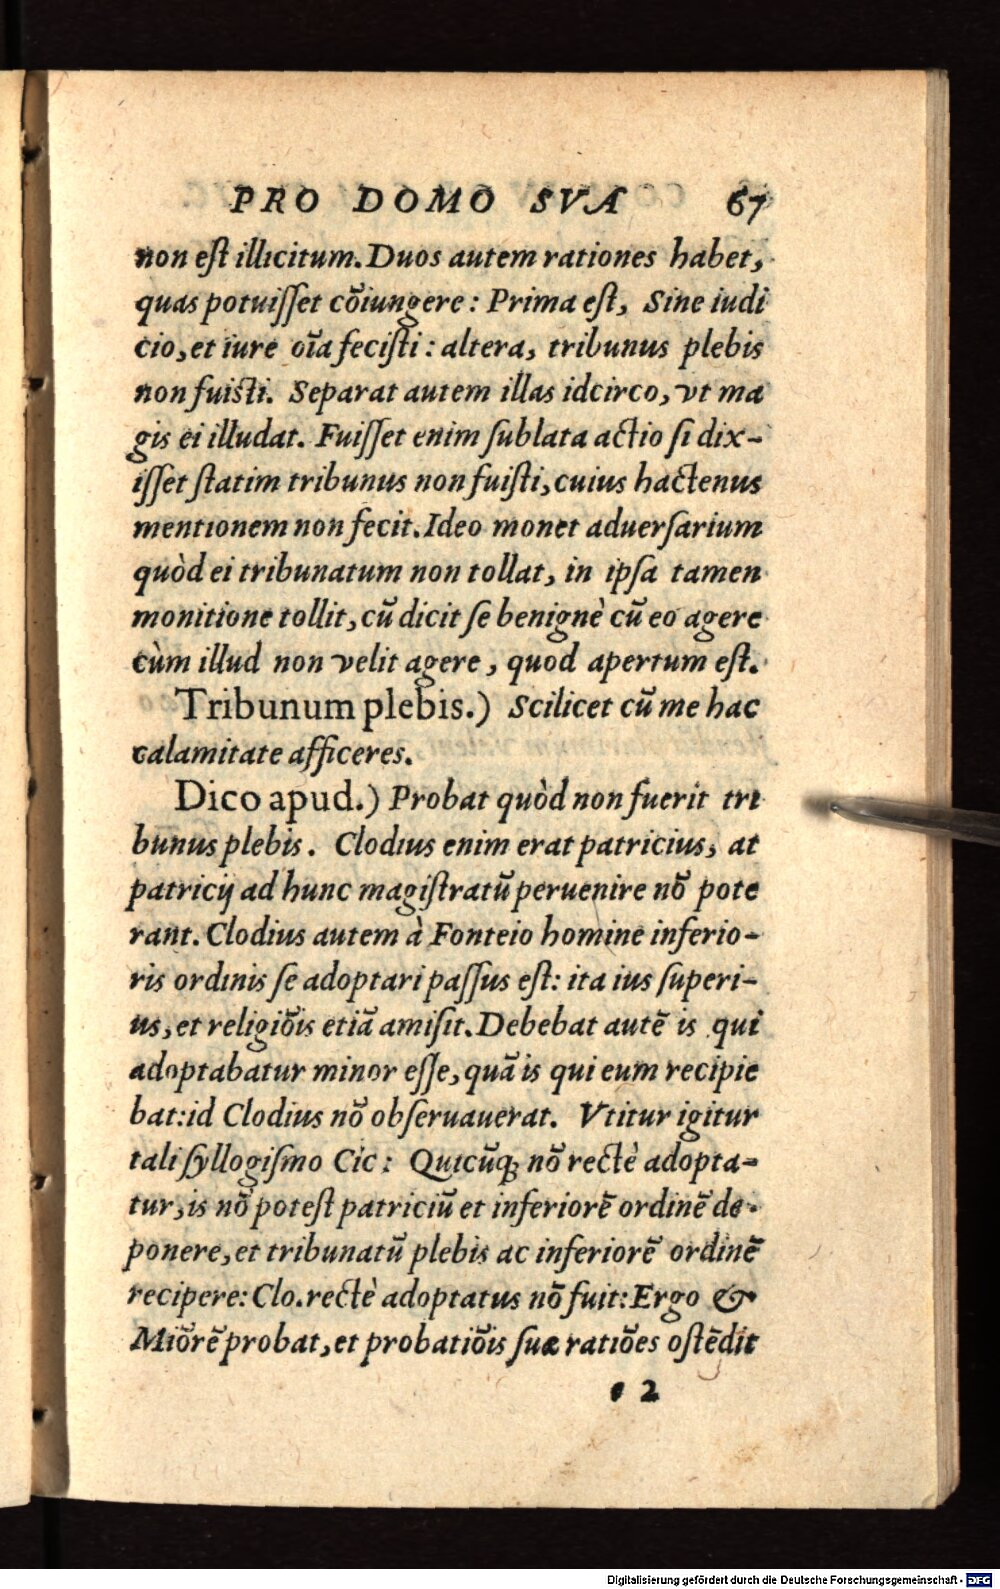 PRO DOMO SVA 67
non eſt illicitum. Duos autem rationes habet,
quas potuiſſet cõiungere: Prima eſt, Sine iudi
cio, et iure oĩa feciſti: altera, tribunus plebis
non fuisti. Separat autem illas idcirco, vt ma
gis ei illudat. Fuiſſet enim ſublata actio ſi dix-
iſſet ſtatim tribunus non fuiſti, cuius hactenus
mentionem non fecit. Ideo monet aduerſarium
quòd ei tribunatum non tollat, in ipſa tamen
monitione tollit, cũ dicit ſe benignè cũ eo agere
cùm illud non velit agere, quod apertum eſt.
Tribunum plebis.) Scilicet cũ me hac
calamitate afficeres.
Dico apud.) Probat quòd non fuerit tri
bunus plebis. Clodius enim erat patricius, at
patricij ad hunc magiſtratũ peruenire nõ pote
rant. Clodius autem à Fonteio homine inferio-
ris ordinis ſe adoptari paſſus eſt: ita ius ſuperi-
us, et religiõis etiã amiſit. Debebat autẽ is qui
adoptabatur minor eſſe, quã is qui eum recipie
bat: id Clodius nõ obſeruauerat. Vtitur igitur
tali ſyllogiſmo Cic: Quicũꝗ nõ rectè adopta-
tur, is nõ poteſt patriciũ et inferiorẽ ordinẽ de-
ponere, et tribunatũ plebis ac inferiorẽ ordinẽ
recipere: Clo. rectè adoptatus nõ fuit: Ergo &
Miõrẽ probat, et probatiõis ſuæ ratiões oſtẽdit
e 2
Digitalisierung gefördert durch die Deutsche Forschungsgemeinschaft - DFG